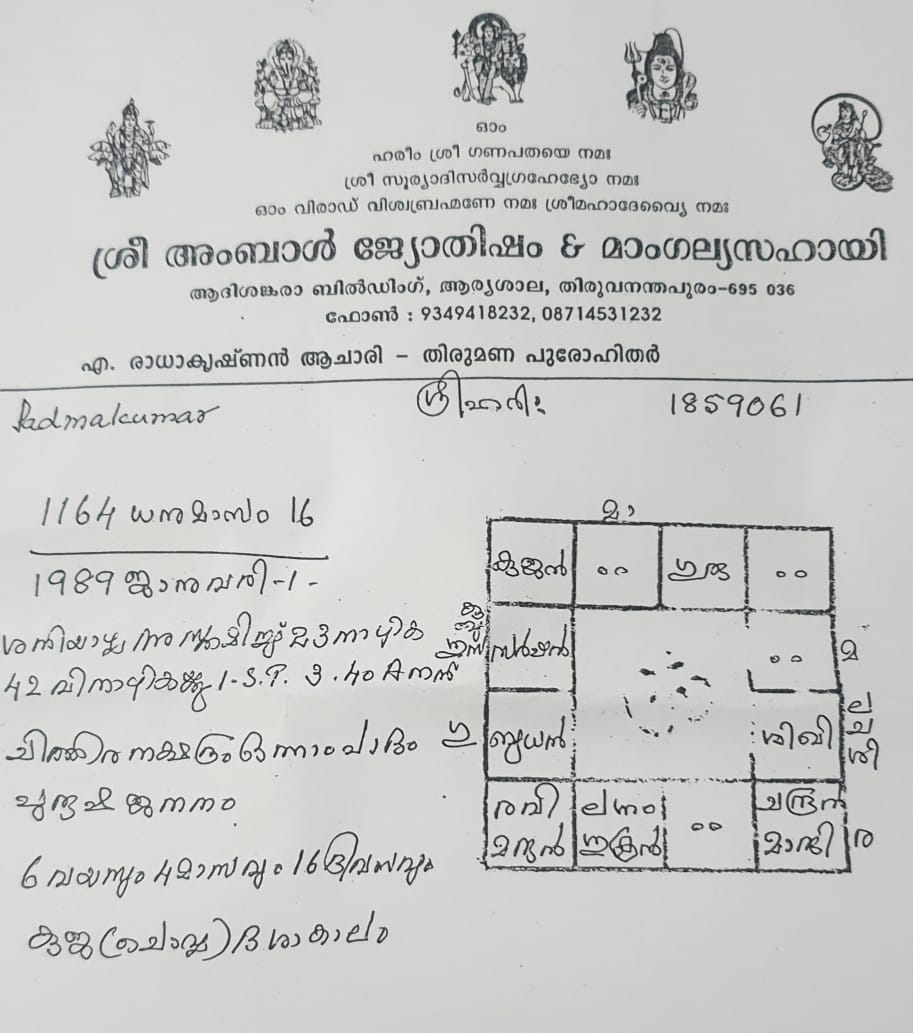 ഓം
ഹരീം ശ്രീ ഗണപതയെ നമഃ
ശ്രീ സൂര്യാദിസർവ്വഗ്രഹേഭ്യോ നമഃ
ഓം വിരാഡ് വിശ്വബ്രഹ്മണേ നമഃ ശ്രീമഹാദേവ്യൈ നമഃ
ശ്രീ അംബാൾ ജ്യോതിഷം & മാംഗല്യസഹായി
ആദിശങ്കരാ ബിൽഡിംഗ്, ആര്യശാല, തിരുവനന്തപുരം-695 036
ഫോൺ : 9349418232, 08714531232
എ. രാധാകൃഷ്ണൻ ആചാരി - തിരുമണ പുരോഹിതർ
Padmakumar ശ്രീഹരിഃ 1859061
1164 ധനുമാസം 16
1989 ജാനുവരി-1-
42 വിനാഴികക്കു I.S.T. 3.40 A
ചിത്തിര നക്ഷത്രം ഒന്നാംപാദം
പുരുഷ ജനനം
6 വയസും 4 മാസവും 16 ദിവസവും
കുജ (ചൊവ്വ) ദശാകാലം
മാ
കുജൻ ഗുരു
സർപ്പൻ മ
ഗു ബുധൻ ശിഖി
രവി ലഗ്നം ചന്ദ്രൻ
മന്ദൻ ശുക്രൻ മാന്ദി ര